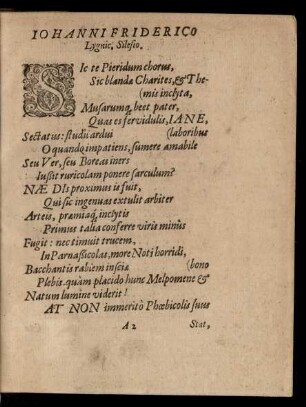 IOHANNI FRIDERICO
Lygnic. Silesio.
SIc te Pieridum chorus,
Sic blandæ Charites, & The-
(mis inclyta,
Musarumq́, beet pater,
Quas es fervidulis, IANE,
Sectatus: studii ardui (laboribus
O quando impatiens, sumere amabile
Seu Ver, seu Boreas iners
Iussit ruricolam ponere sarculum?
NÆ DIs proximus is fuit,
Qui sic ingenuas extulit arbiter
Arteis, præmiaq́, inclytis
Primus talia conferre viris minus
Fugit: nec timuit trucem,
In Parnassicolas, more Noti horridi,
Bacchantis rabiem insciæ (bono
Plebis. quàm placido hunc Melpomene &
Natum lumine viderit!
AT NON immeritò Phœbicolis suus
A 2 Stat,